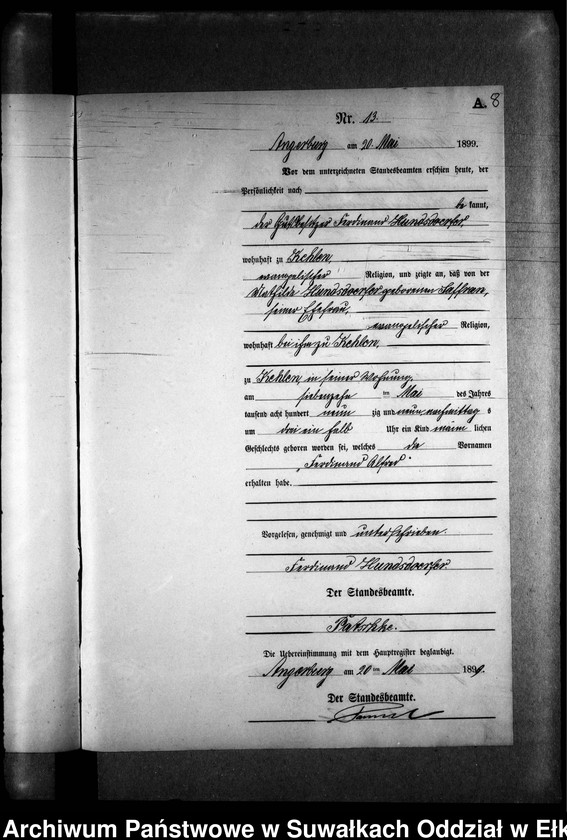 A. 8
Nr. 13.
Angerburg am 20. Mai 1899.
Vor dem unterzeichneten Standesbeamten erschien heute, der
Persönlichkeit nach
be kannt,
der Gutsbesitzer Ferdinand Hundsdoerfer,
wohnhaft zu Kehlen,
evangelischer Religion, und zeigte an, daß von der
Mathilde Hundsdoerfer geborenen Saffran,
seiner Ehefrau,
evangelischer Religion,
wohnhaft bei ihm zu Kehlen,
zu Kehlen in seiner Wohnung,
am siebenzehn ten Mai des Jahres
tausend acht hundert neun zig und neun, nachmittag s
um drei ein halb Uhr ein Kind männ lichen
Geschlechts geboren worden sei, welches die Vornamen
„Ferdinand Alfred"
erhalten habe.
Vorgelesen, genehmigt und unterschrieben.
Ferdinand Hundsdoerfer.
Der Standesbeamte.
Die Uebereinstimmung mit dem Hauptregister beglaubigt.
Angerburg am 20 ten Mai 1899.
Der Standesbeamte.
Archiwum Państwowe w Suwałkach Oddział w Ełk